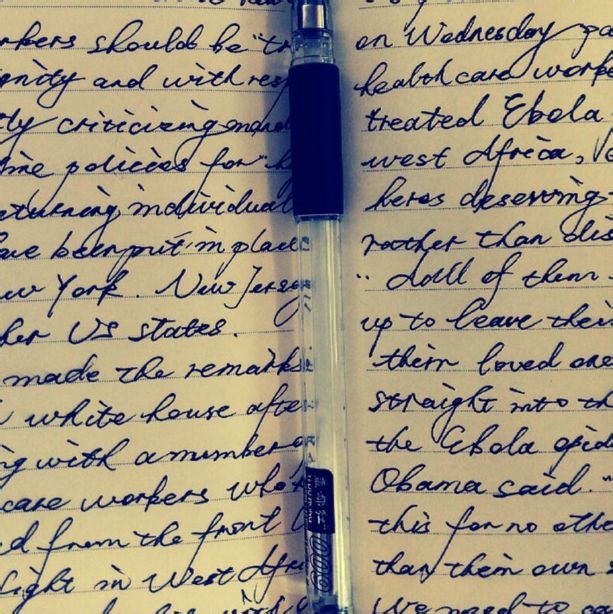 rkers should be "tr
gnity and with resp
tly criticizing
me policies for
eturning individual
ave been put in place
ew York. New Jersey
her US states.
made the remarks
white house after
ng with a number o
care workers who
d from the front
fight in West Afri
on Wednesday
health care worke
treated Ebola
west Africa,
heros deserving
rather than dis
" all of them
up to leave their
their loved one
straight into th
the Ebola epid
Obama said."
this for no othe
than them own s
We need to